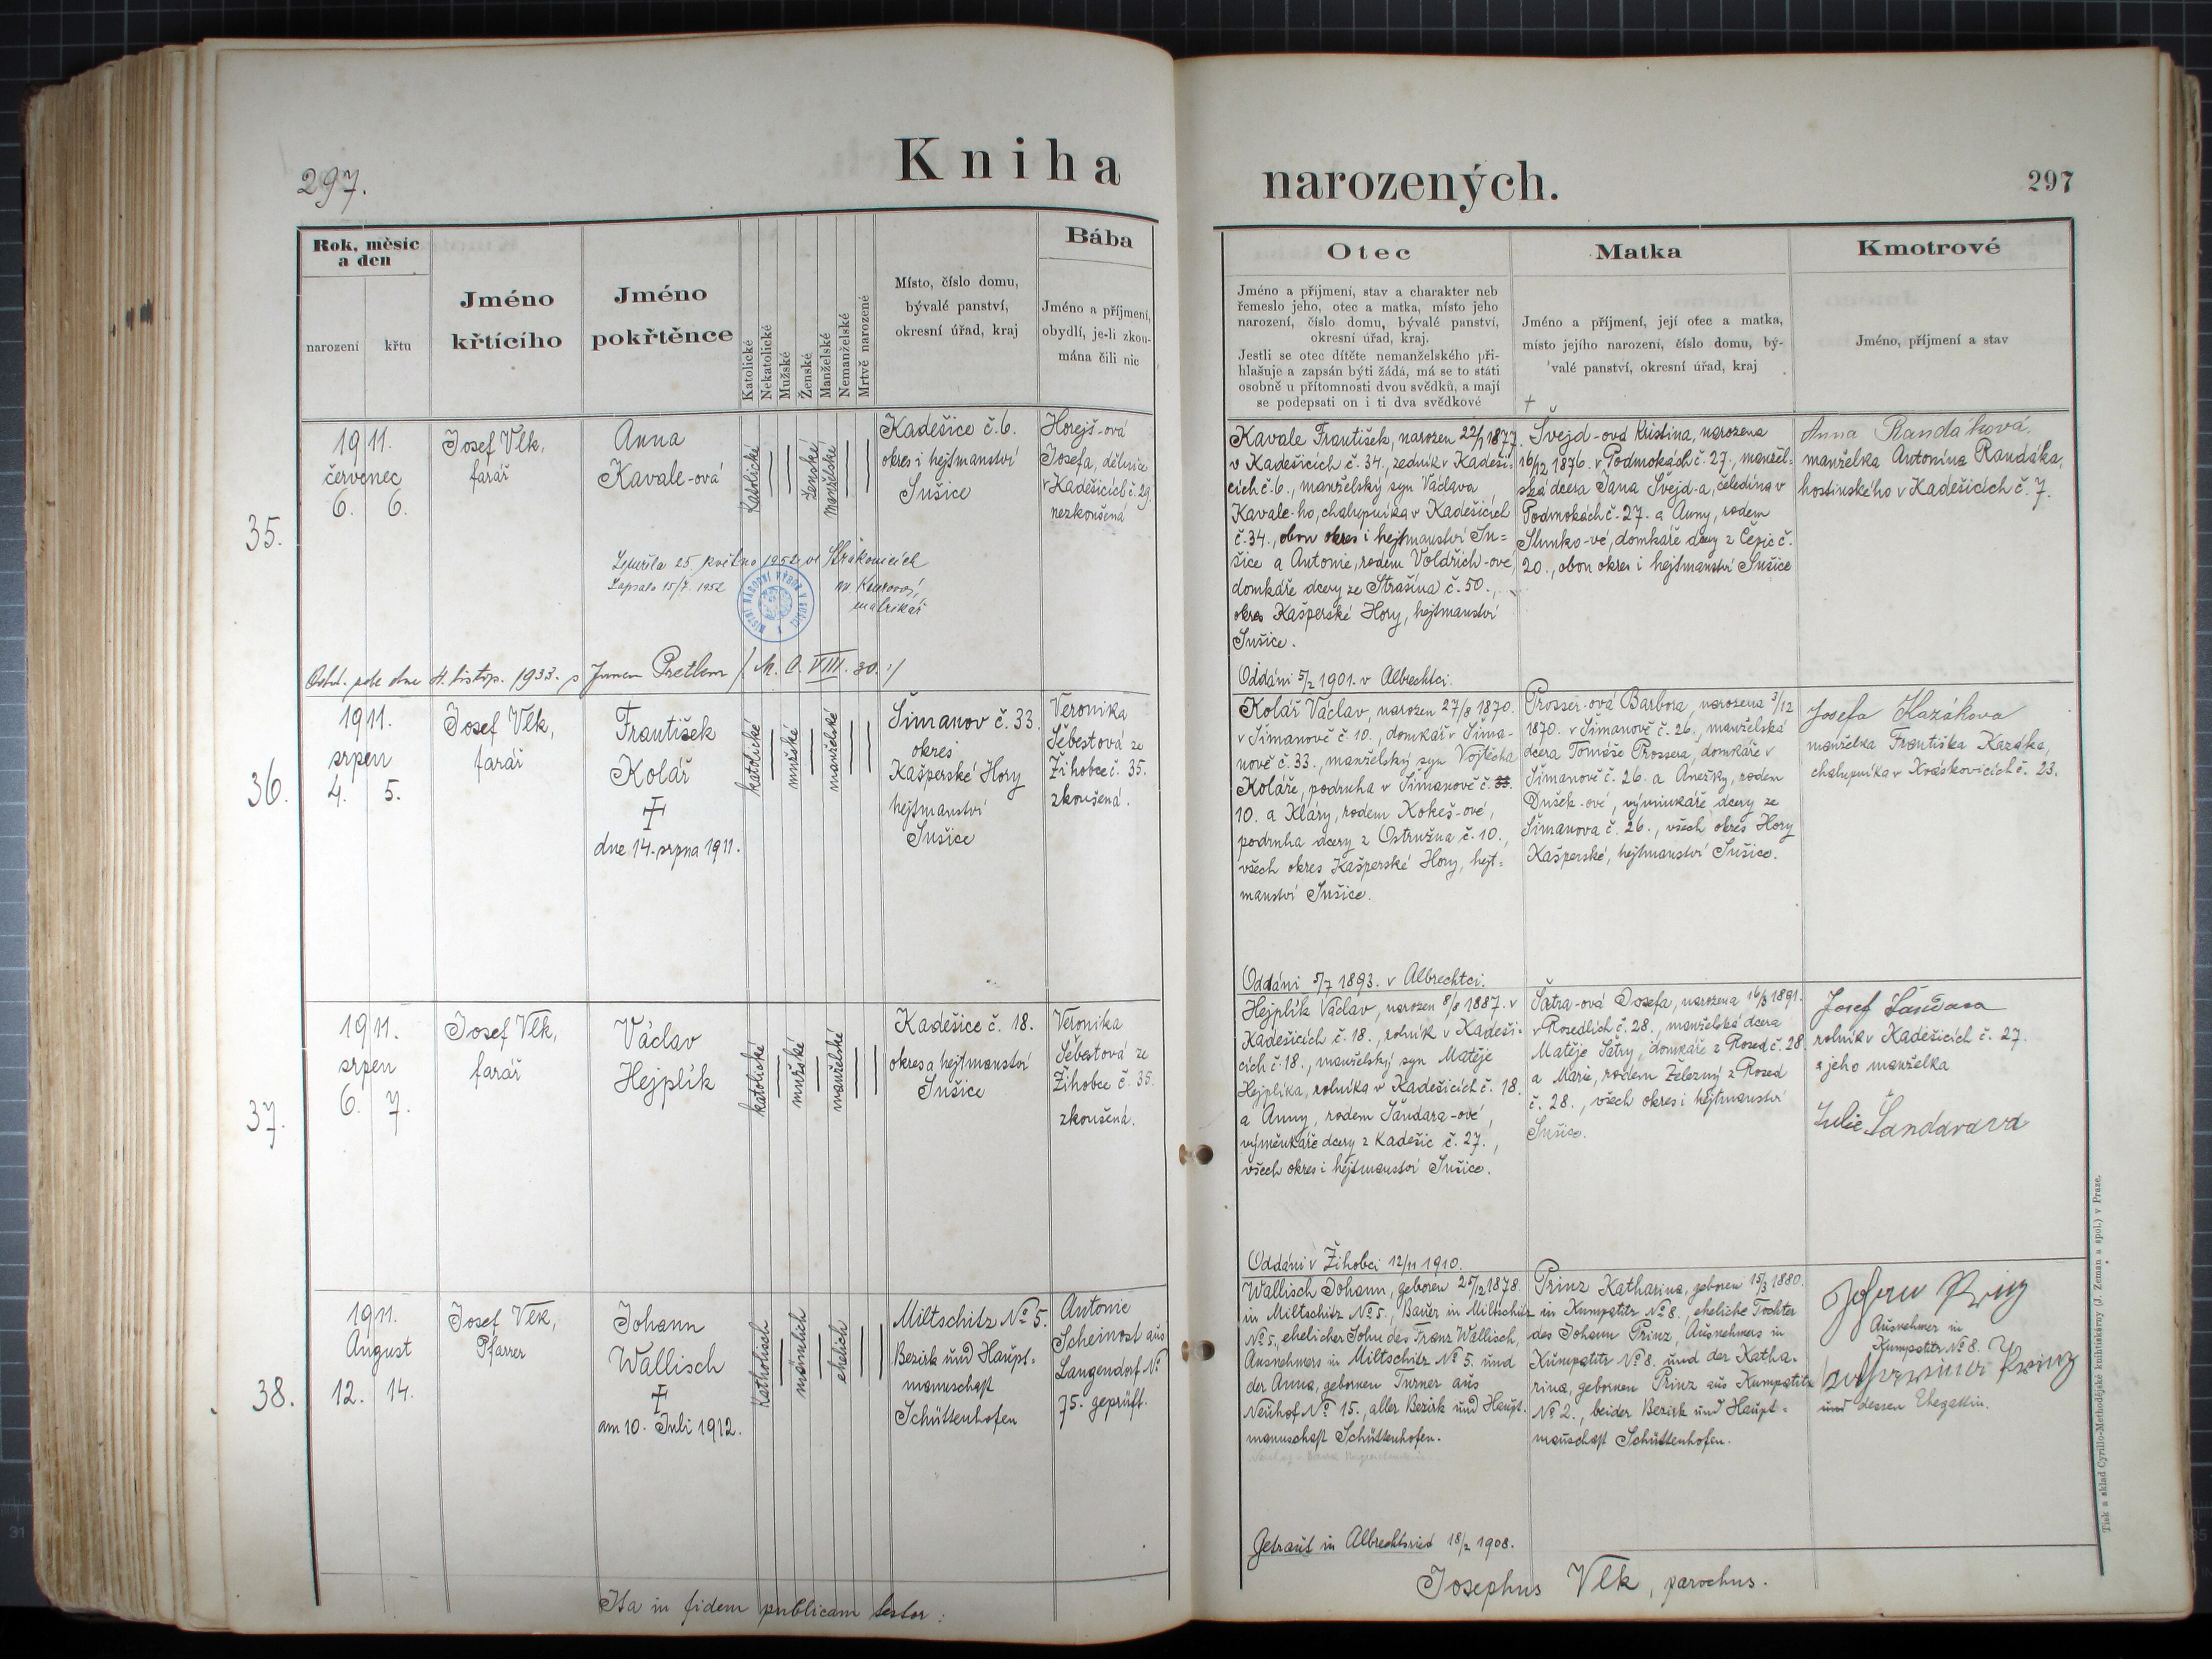 297.
Kniha
narozených.
297
Rok, měsíc
a den
narození
křtu
Jméno
křtícího
Jméno
pokřtěnce
Katolické
Nekatolické
Mužské
Ženské
Manželské
Nemanželské
Mrtvě narozené
Místo, číslo domu,
bývalé panství,
okresní úřad, kraj
Bába
Jméno a příjmení,
obydlí, je-li zkou-
mána čili nic
Otec
Jméno a příjmení, stav a charakter neb
řemeslo jeho, otec a matka, místo jeho
narození, číslo domu, bývalé panství,
okresní úřad, kraj.
Jestli se otec dítěte nemanželského při-
hlašuje a zapsán býti žádá, má se to státi
osobně u přítomnosti dvou svědků, a mají
se podepsati on i ti dva svědkové
Matka
Jméno a příjmení, její otec a matka,
místo jejího narození, číslo domu, bý-
valé panství, okresní úřad, kraj
Kmotrové
Jméno, příjmení a stav
35.
1911.
červenec
6. 6.
Josef Vlk,
farář
Anna
Kavale-ová
katolické
ženské
manželské
Kadešice č. 6.
okres i hejtmanství
Sušice
Horejš-ová
Josefa, dělnice
v Kadešicích č. 29.
nezkoušená
Zemřela 25. května 1952 ve Strakonicích
Zapsáno 15/7. 1952
matrikář
MÍSTNÍ NÁRODNÍ VÝBOR
Odd. zde dne 4. listop. 1933. s Janem Pretlem /M. O. VIII. 30.:/
Kavale František, narozen 22/1 1877.
v Kadešicích č. 34., zedník v Kadeši-
cích č. 6., manželský syn Václava
Kavale-ho, chalupníka v Kadešicích
č. 34., obou okres i hejtmanství Su=
šice a Antonie, rodem Voldřich-ové,
domkáře dcery ze Strašína č. 50.,
okres Kašperské Hory, hejtmanství
Sušice.
Oddáni 5/2 1901. v Albrechtci.
Švejd-ová Kristina, narozena
16/12 1876. v Podmokách č. 27., manžel-
ská dcera Jana Švejd-a, čeledína v
Podmokách č. 27. a Anny, rodem
Slunko-vé, domkáře dcery z Čejic č.
20., obou okres i hejtmanství Sušice
Anna Randáková,
manželka Antonína Randáka,
hostinského v Kadešicích č. 7.
36.
1911.
srpen
4. 5.
Josef Vlk,
farář
František
Kolář
†
dne 14. srpna 1911.
katolické
mužské
manželské
Šimanov č. 33.
okres
Kašperské Hory
hejtmanství
Sušice
Veronika
Šebestová ze
Žihobce č. 35.
zkoušená.
Kolář Václav, narozen 27/8 1870.
v Šimanově č. 10., domkář v Šima-
nově č. 33., manželský syn Vojtěcha
Koláře, podruha v Šimanově č. 33.
10. a Kláry, rodem Kokeš-ové,
podruha dcery z Ostružna č. 10.,
všech okres Kašperské Hory, hejt=
manství Sušice.
Oddáni 5/7 1893. v Albrechtci.
Prosser-ová Barbora, narozena 3/12
1870. v Šimanově č. 26., manželská
dcera Tomáše Prossera, domkáře v
Šimanově č. 26. a Anežky, rodem
Dušek-ové, výminkáře dcery ze
Šimanova č. 26., všech okres Hory
Kašperské, hejtmanství Sušice.
Josefa Kazákova
manželka Františka Kazáka,
chalupníka v Kváskovicích č. 23.
37.
1911.
srpen
6. 7.
Josef Vlk,
farář
Václav
Hejplík
katolické
mužské
manželské
Kadešice č. 18.
okres a hejtmanství
Sušice
Veronika
Šebestová ze
Žihobce č. 35.
zkoušená.
Hejplík Václav, narozen 8/8 1887. v
Kadešicích č. 18., rolník v Kadeši-
cích č. 18., manželský syn Matěje
Hejplíka, rolníka v Kadešicích č. 18.
a Anny, rodem Šandara-ové,
výměnkáře dcery z Kadešic č. 27.,
všech okres i hejtmanství Sušice.
Oddáni v Žihobci 12/11 1910.
Šatra-ová Josefa, narozena 16/3 1891.
v Rosedlích č. 28., manželská dcera
Matěje Šatry, domkáře z Rosed č. 28
a Marie, rodem Železný z Rosed
č. 28., všech okres i hejtmanství
Sušice.
Josef Šandara
rolník v Kadešicích č. 27.
a jeho manželka
Julie Šandarová
38.
1911.
August
12. 14.
Josef Vlk,
Pfarrer
Johann
Wallisch
†
am 10. Juli 1912.
Katholisch
männlich
ehelich
Miltschitz No 5.
Bezirk und Haupt=
mannschaft
Schüttenhofen
Antonie
Scheinost aus
Langendorf No
75. geprüft.
Wallisch Johann, geboren 25/12 1878.
in Miltschitz No 5., Bauer in Miltschitz
No 5., ehelicher Sohn des Franz Wallisch,
Ausnehmers in Miltschitz No 5. und
der Anna, gebornen Turner aus
Neuhof No 15., aller Bezirk und Haupt.
mannschaft Schüttenhofen.
Getraut in Albrechtsried 18/2 1908.
Prinz Katharina, geboren 15/3 1880.
in Kumpatitz No 8., eheliche Tochter
des Johann Prinz, Ausnehmers in
Kumpatitz No 8. und der Katha-
rina, gebornen Prinz aus Kumpatitz
No 2., beider Bezirk und Haupt=
mannschaft Schüttenhofen.
Johann Prinz
Ausnehmer in
Kumpatitz No 8.
Prinz
und dessen Ehegattin.
Ita in fidem publicam testor:
Josephus Vlk, parochus.
Tisk a sklad Cyrillo-Methodějské knihtiskárny (J. Zeman a spol.) v Praze.